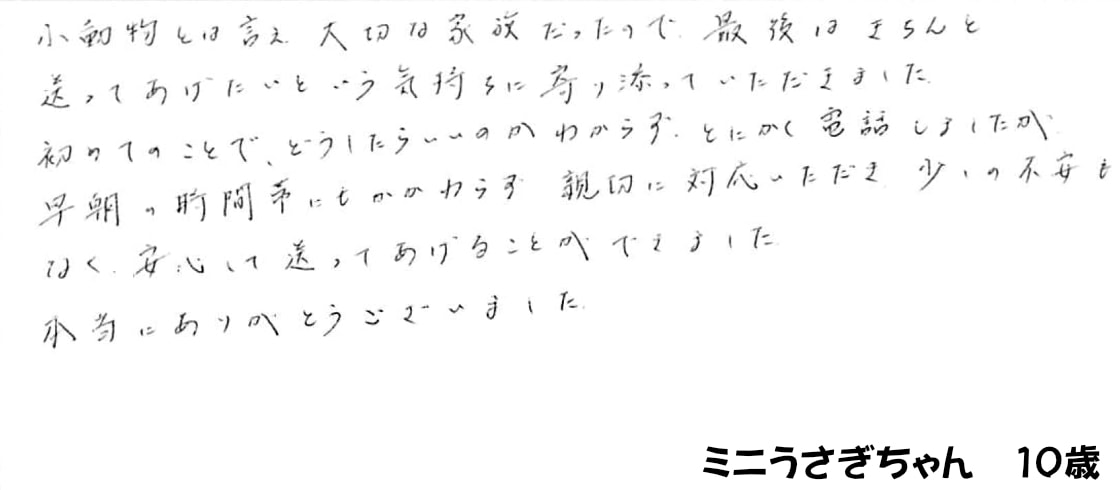 小動物とは言え、大切な家族だったので、最後はきちんと
送ってあげたいという気持ちに寄り添っていただきました。
初めてのことで、どうしたらいいのかわからず、とにかく電話しましたが、
早朝の時間帯にもかかわらず 親切に対応いただき、少しの不安も
なく、安心して送ってあげることができました。
本当にありがとうございました。
ミニうさぎちゃん 10歳